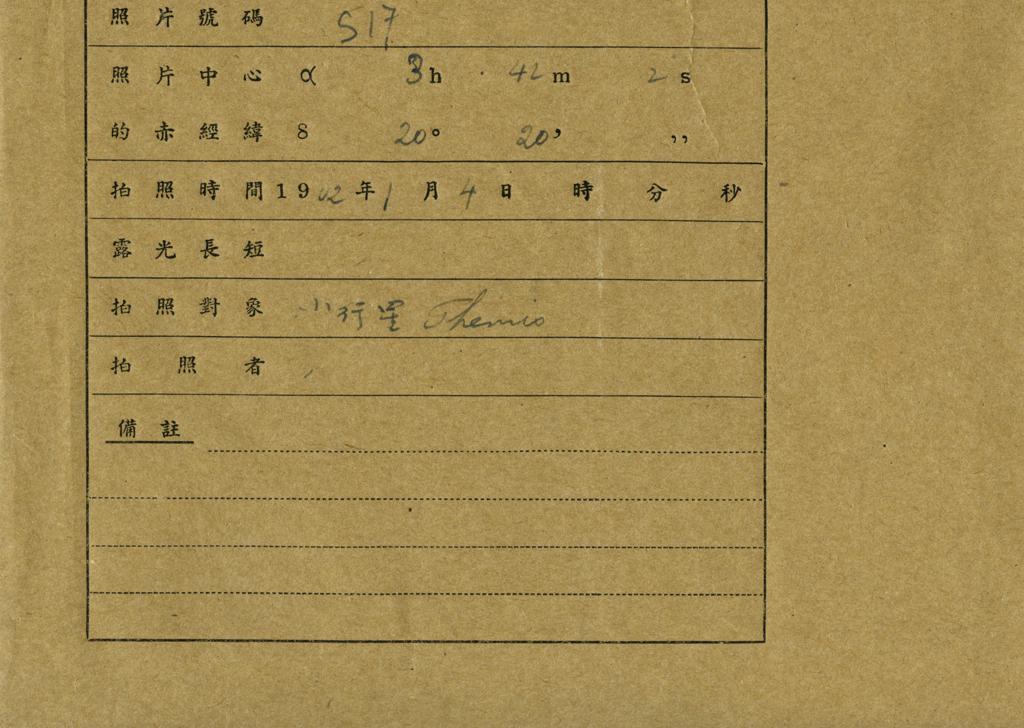 照片號碼 S17
照片中心 α 3h 42m 2s
的赤經緯 δ 20° 20’ ,,
拍照時間1902年1月4日 時 分 秒
露光長短
拍照對象 小行星 Themis
拍照者
備註